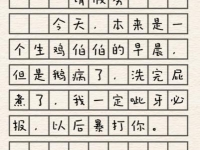 今天，本来是一
个生鸡伯伯的早晨。
但是鹅病了，洗完屁
煮了，我一定呲牙必
报，以后暴打你。